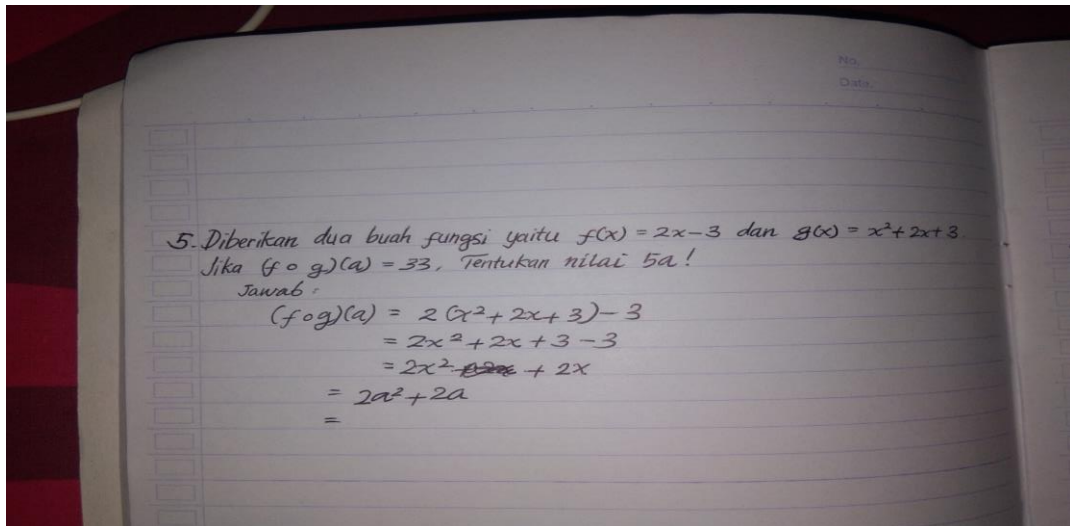 No.
Date.
5. Diberikan dua buah fungsi yaitu f(x) = 2x-3 dan g(x) = x²+2x+3
Jika (f o g)(a) = 33, Tentukan nilai 5a!
Jawab:
(fog)(a) = 2(x²+2x+3)-3
= 2x²+2x+3-3
= 2x² + 2x
= 2a²+2a
=